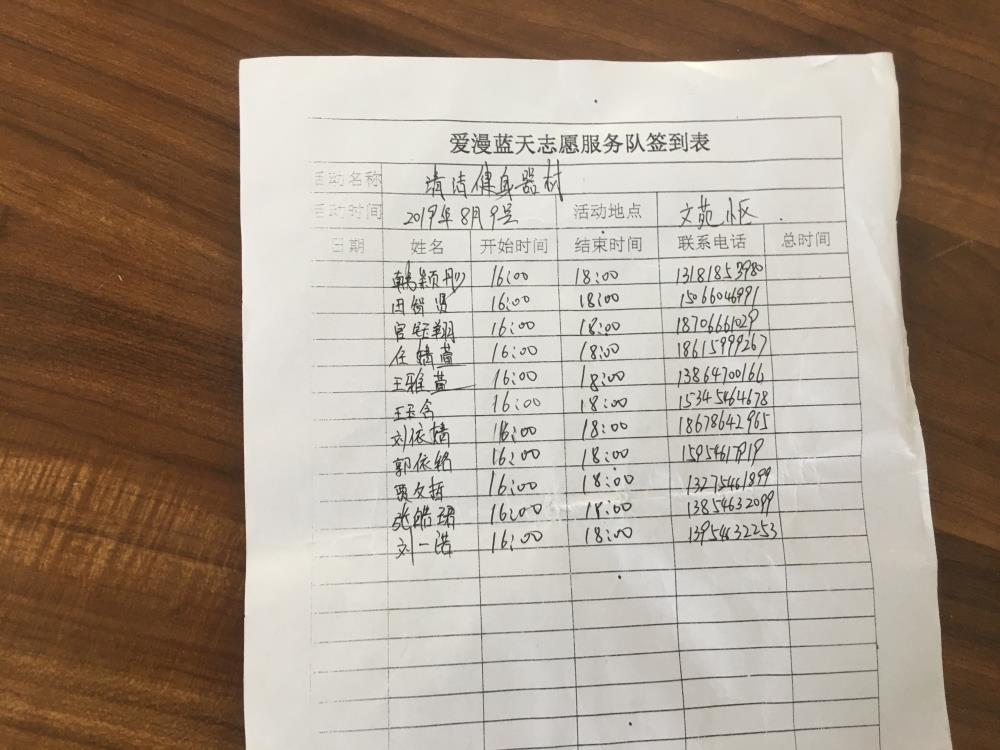 爱漫蓝天志愿服务队签到表
活动名称 清洁健身器材
活动时间 2019年8月9号 活动地点 文苑小区
日期 姓名 开始时间 结束时间 联系电话 总时间
韩颖彤 16:00 18:00 13181853980
田智贤 16:00 18:00 15066046991
官钰翔 16:00 18:00 18706661029
任婧萱 16:00 18:00 18615999267
王雅萱 16:00 18:00 13864700166
王玉含 16:00 18:00 15345464678
刘依婧 16:00 18:00 18678642965
郭依铭 16:00 18:00 15954617919
贾文哲 16:00 18:00 13275461899
张皓珺 16:00 18:00 13854632099
刘一诺 16:00 18:00 13954632253